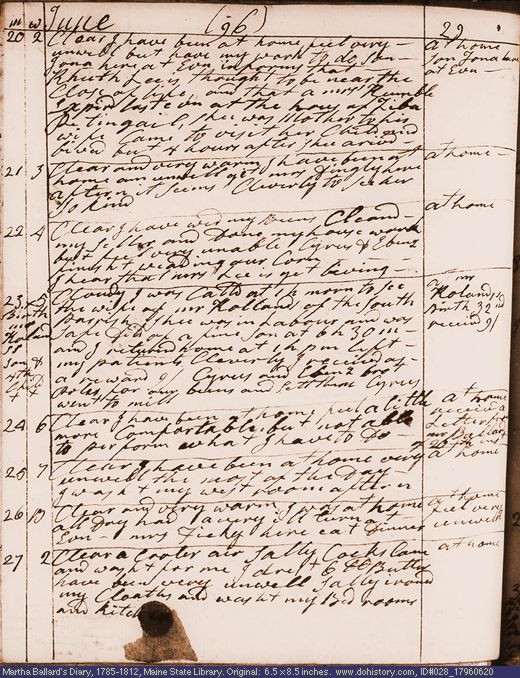 m w June (96) 29
20 2 Clear, I have been at home feel very at home
unwell but have my work to do. Son Son Jonathan
Jona here at Evn informs me that at Evn
Rhuth Lee is thought to be near the
Close of life, and that a mrs Kumble
Expird last evn at the house of Tiba
Petingail, shee was Mother to his
wife Came to visit her Child and
livd but 4 hours after shee arivd
21 3 Clear and very warm. I have been at at home
home am unwell. old mrs Dingly here
aftern it seems Cleverly to see her
So kind
22 4 Clear, I have wed my Beens Cleand at home
my Seller and Done my house work
but feel very unable. Cyrus & Ebenz
finisht weading our Corn
I hear that mrs Lee is yet living
23 5 Cloudy. I was Calld at 11 morn to see at mr
Birth the wife of mr Holland of the South Holands
mr Parish. Shee was in labour and was Birth 32nd
Holland Safe Dd of a fine son at 3 h 30 m receivd 9/
and I returnd home at 6 pm. left
Son my patients Cleverly. I received as
a reward 9/. Cyrus and Ebenz brot
Poles for my beens and sett them Cyrus
went to mill
24 6 Clear. I have been at home feel a little at home
more Comfortable but not able receivd a
to perform what I have to Do Letter from
25 7 Clear, I have been at home very at home
unwell the most of the Day
I washt my west room after n
26 Clear and very warm. I was at home at home
all Day had a very ill turn at feel very
Evn. mrs here eat Dinner unwell
27 2 Clear a Cooler air Sally Cocks Came at home
and washt for me. I drest 6 lb Butter
have been very unwell Sally irond
my Cloaths and washt my Bed rooms
and Kitch
Martha Ballard's Diary, 1785-1812, Maine State Library. Original: 6.5 x 8.5 inches. www.dohistory.com, ID#028_17960620